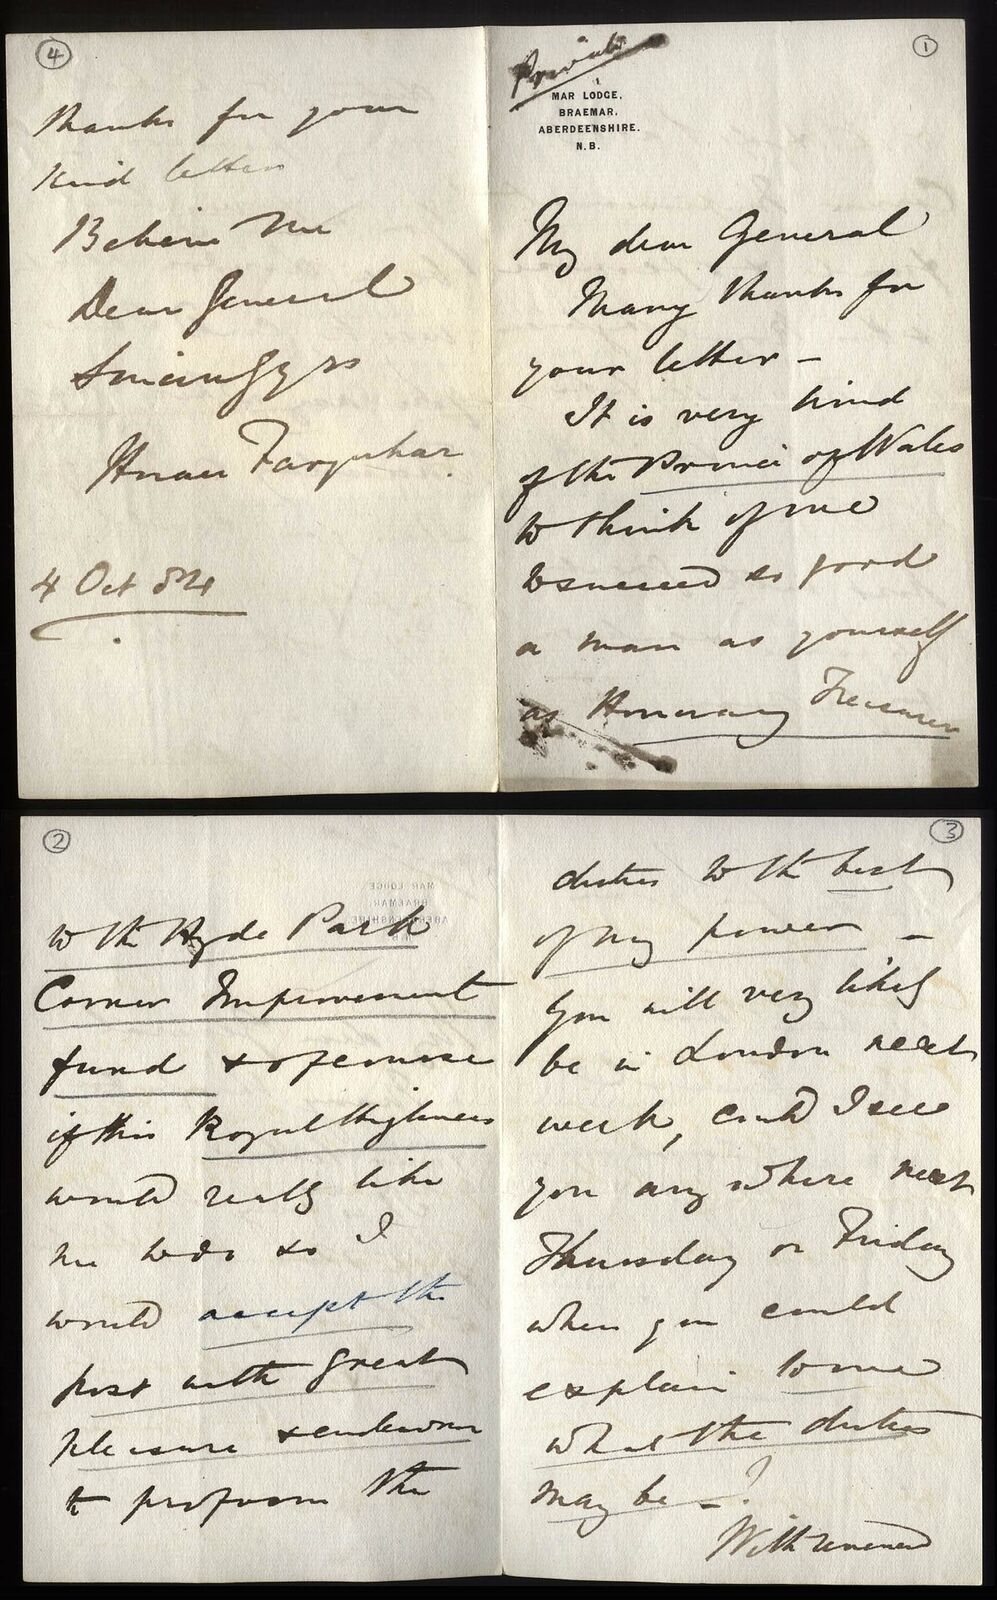 ①
Private
MAR LODGE,
BRAEMAR,
ABERDEENSHIRE.
N.B.
My dear General
Many thanks for
your letter –
It is very kind
of the Prince of Wales
to think of me
to succeed so good
a man as yourself
as Honorary Treasurer
②
to the Hyde Park
Corner Improvement
fund & of course
if this Royal Highness
would really like
me to do so I
would accept the
post with great
pleasure & endeavour
to perform the
③
duties to the best
of my power –
You will very likely
be in London next
week, could I see
you any where next
Thursday or Friday
when you could
explain to me
what the duties
may be – ?
With renewed
④
thanks for your
kind letter
Believe me
Dear General
Sincerely yrs
Horace Farquhar
4 Oct 84